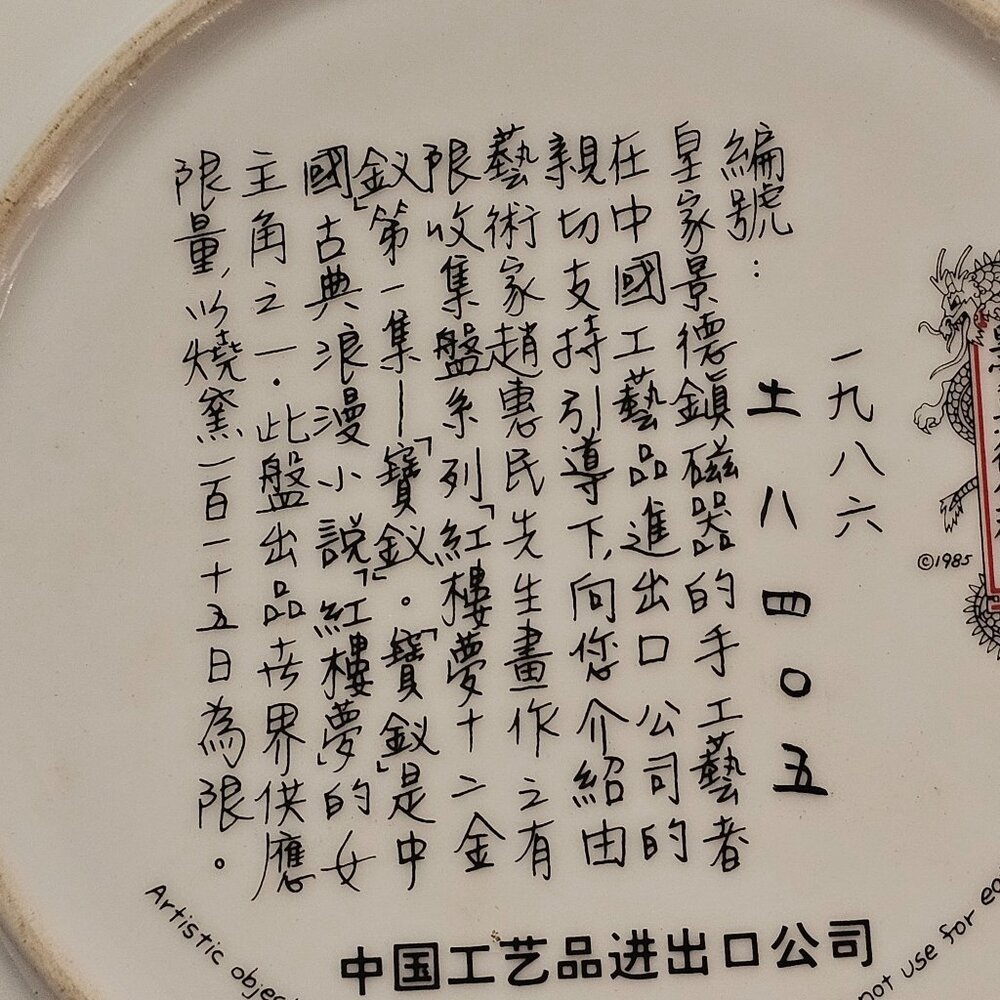 一九八六
編號：土八四〇五
皇家景德鎮磁器的手工藝者
在中國工藝品進出口公司的
親切支持引導下,向您介紹由
藝術家趙惠民先生畫作之有
限收集盤系列「紅樓夢十二金
釵」第一集—「寶釵」。「寶釵」是中
國古典浪漫小說「紅樓夢」的女
主角之一.此盤出品世界供應
限量,以燒窯一百一十五日為限。
©1985
中国工艺品进出口公司
Artistic objec
not use for